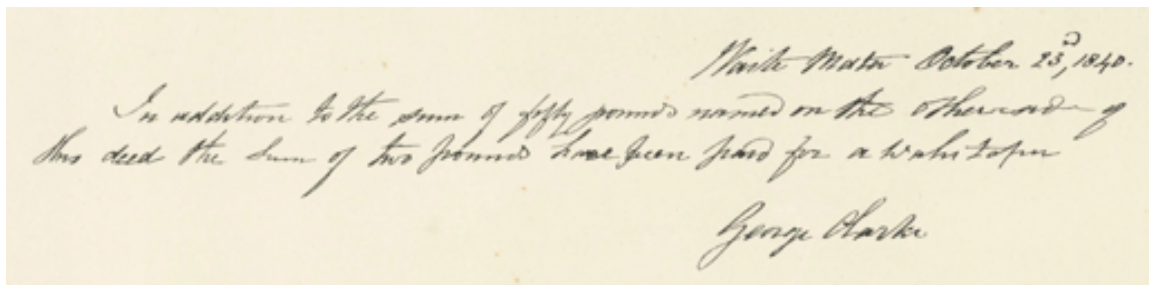 Waite Mata October 23d, 1840.
In addition to the sum of fifty pounds named on the other side of
this deed the sum of two pounds have been paid for a wahi tapu
George Clarke